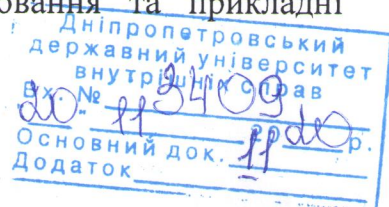 овання та прикладні
Дніпропетровський
державний університет
внутрішніх справ
Вх. № 3409
"20" 11 2020 р.
Основний док. 11
Додаток